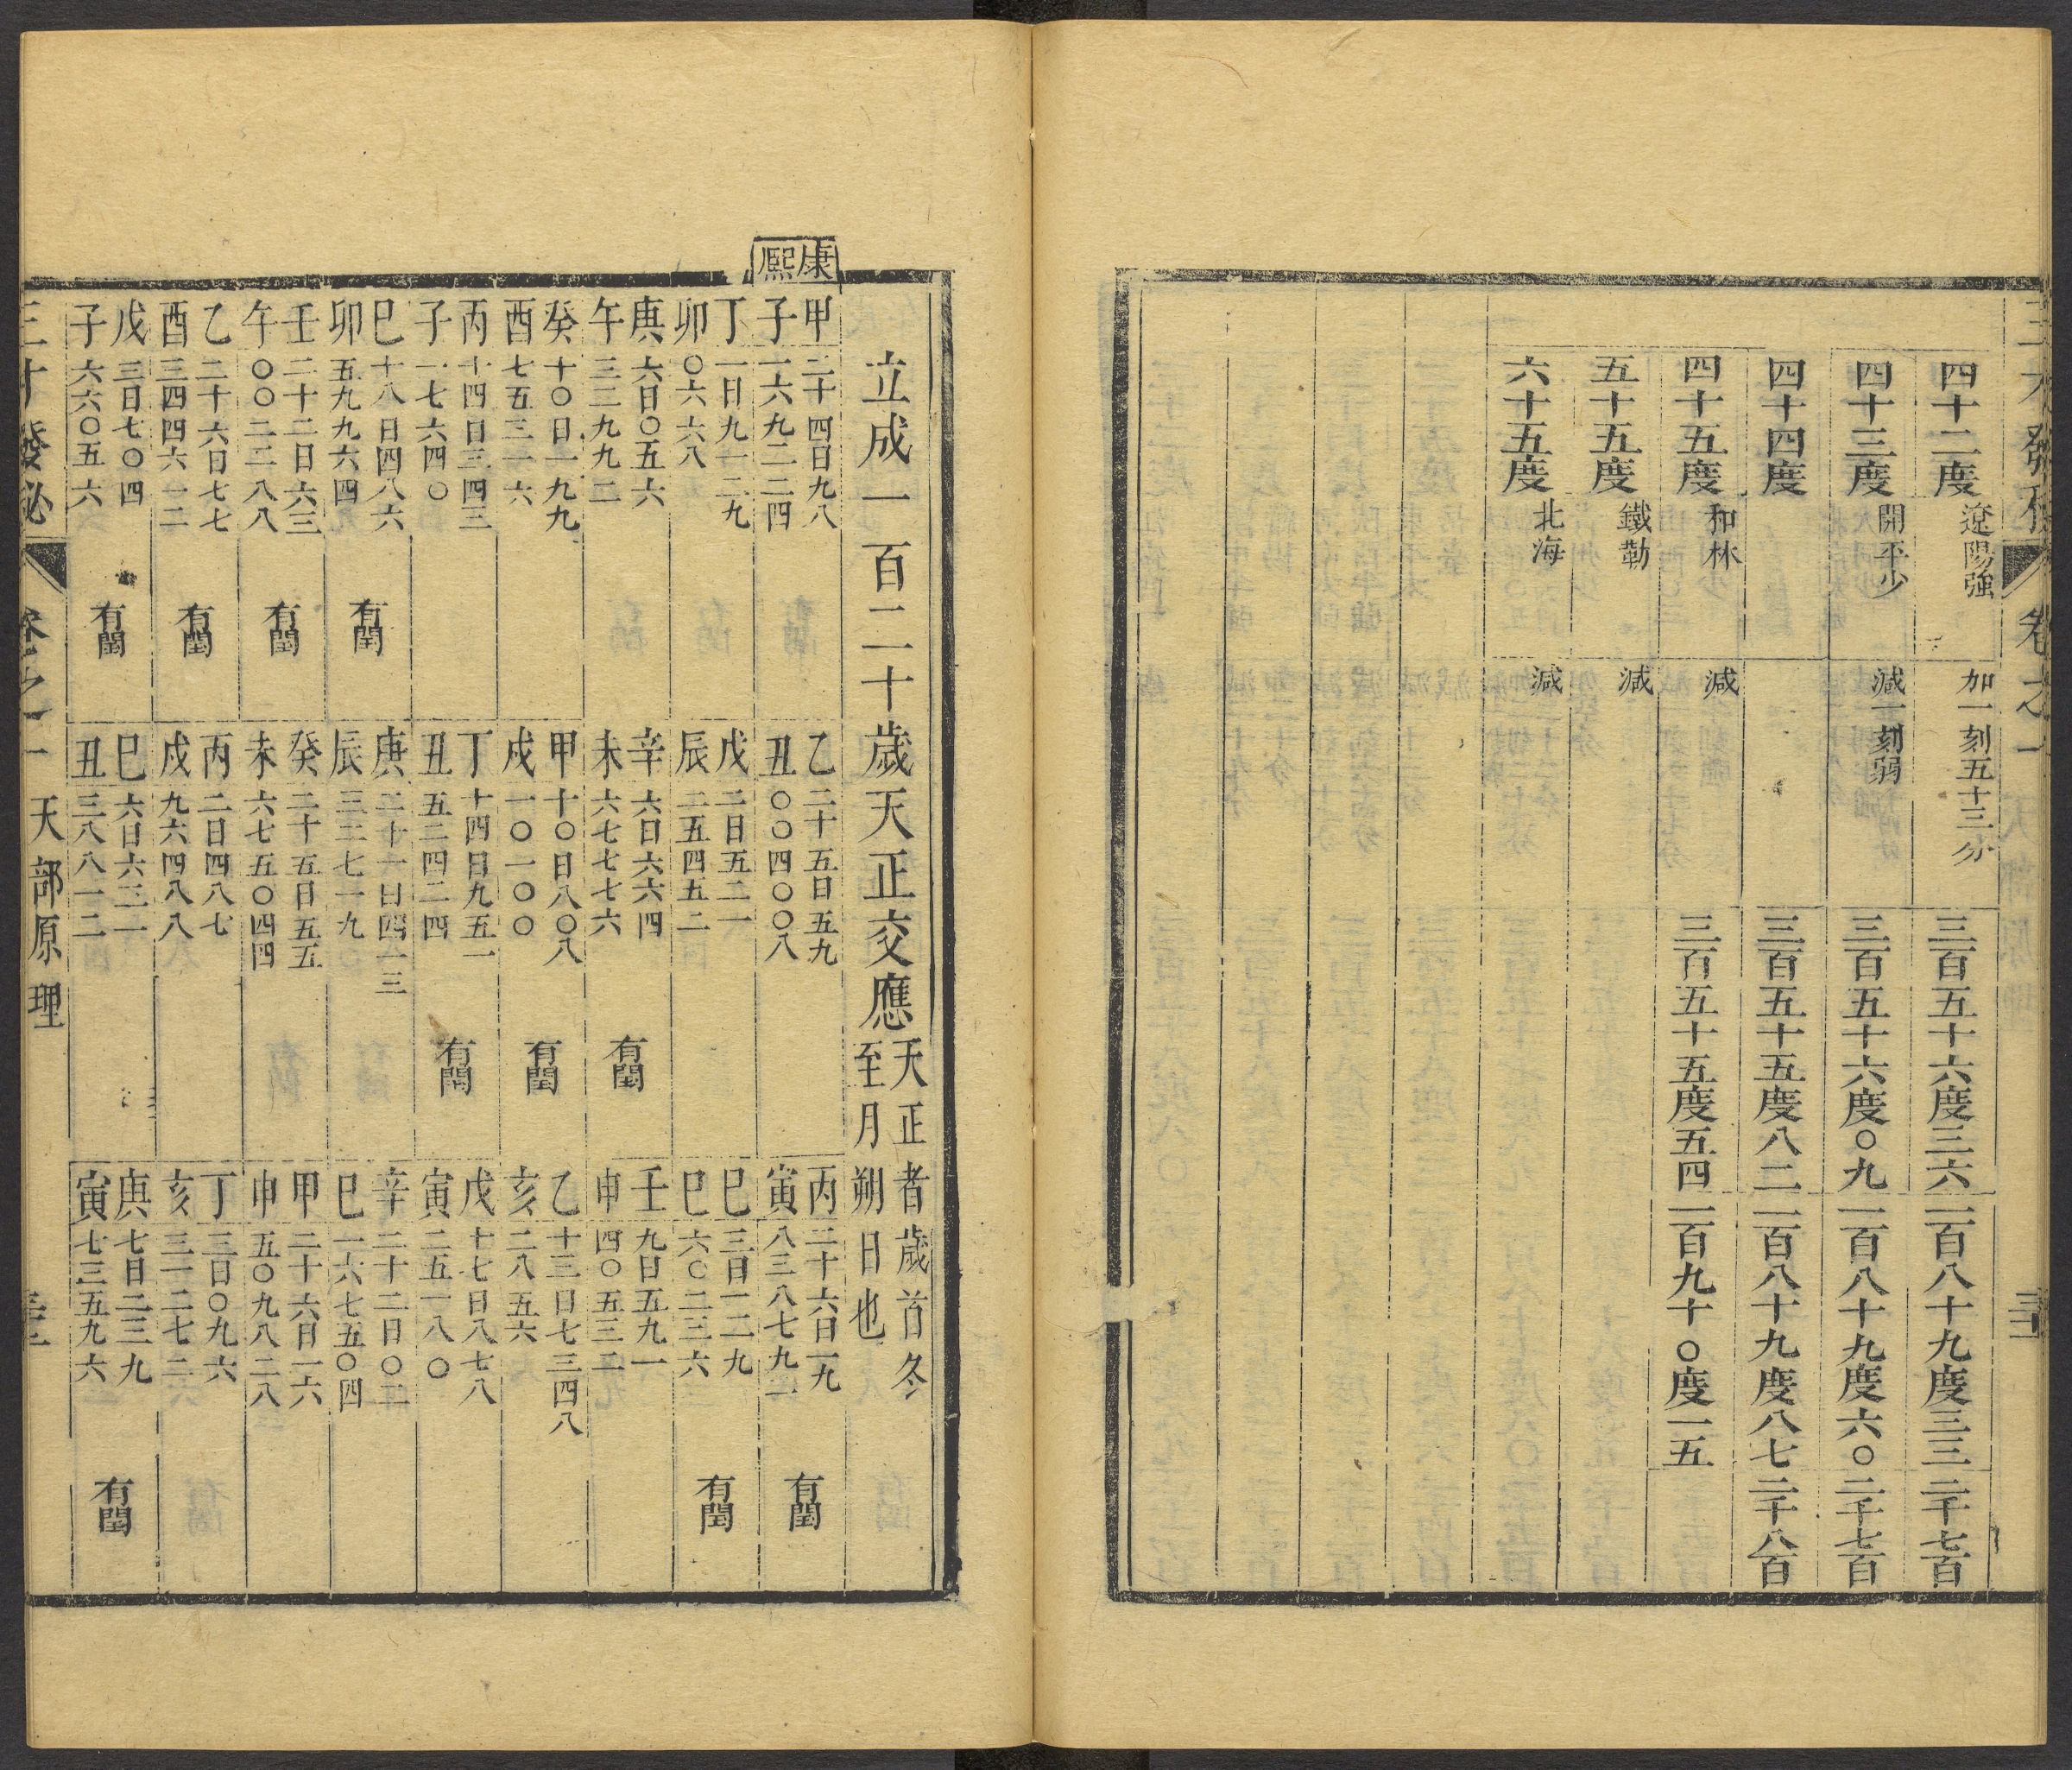 四十二度 遼陽強 加一刻五十三分 三百五十六度三六 一百八十九度三三 二千七百
四十三度 開平少 減一刻弱 三百五十六度〇九 一百八十九度六〇 二千七百
四十四度 三百五十五度八二 一百八十九度八七 二千八百
四十五度 和林 減 三百五十五度五四 一百九十〇度一五
五十五度 鐵勒 減
六十五度 北海 減
康熙
立成一百二十歲天正交應 天正者歲首冬至月朔日也
甲子 二十四日九八一六九二二四
乙丑 二十五日五九〇〇四〇〇八
丙寅 二十六日一九八三八七九二 有閏
丁卯 一日九一二九〇六六八
戊辰 二日五二一二五四五二
巳巳 三日一二九六〇二三六 有閏
庚午 六日〇五六三二九九二
辛未 六日六六四六七七七六 有閏
壬申 九日五九一四〇五三二
癸酉 十〇日一九九七五三一六
甲戌 十〇日八〇八一〇一〇〇 有閏
乙亥 十三日七三四八二八五六
丙子 十四日三四三一七六四〇
丁丑 十四日九五一五二四二四 有閏
戊寅 十七日八七八二五一八〇
巳卯 十八日四八六五九九六四 有閏
庚辰 二十一日四一三三二七一九
辛巳 二十二日〇二一六七五〇四
壬午 二十二日六三〇〇二二八八 有閏
癸未 二十五日五五六七五〇四四
甲申 二十六日一六五〇九八二八
乙酉 二十六日七七三四四六一二 有閏
丙戌 二日四八七九六四八八
丁亥 三日〇九六三一二七二
戊子 三日七〇四六六〇五六 有閏
巳丑 六日六三一三八八一二
庚寅 七日二三九七三五九六 有閏
卷之一 天部原理